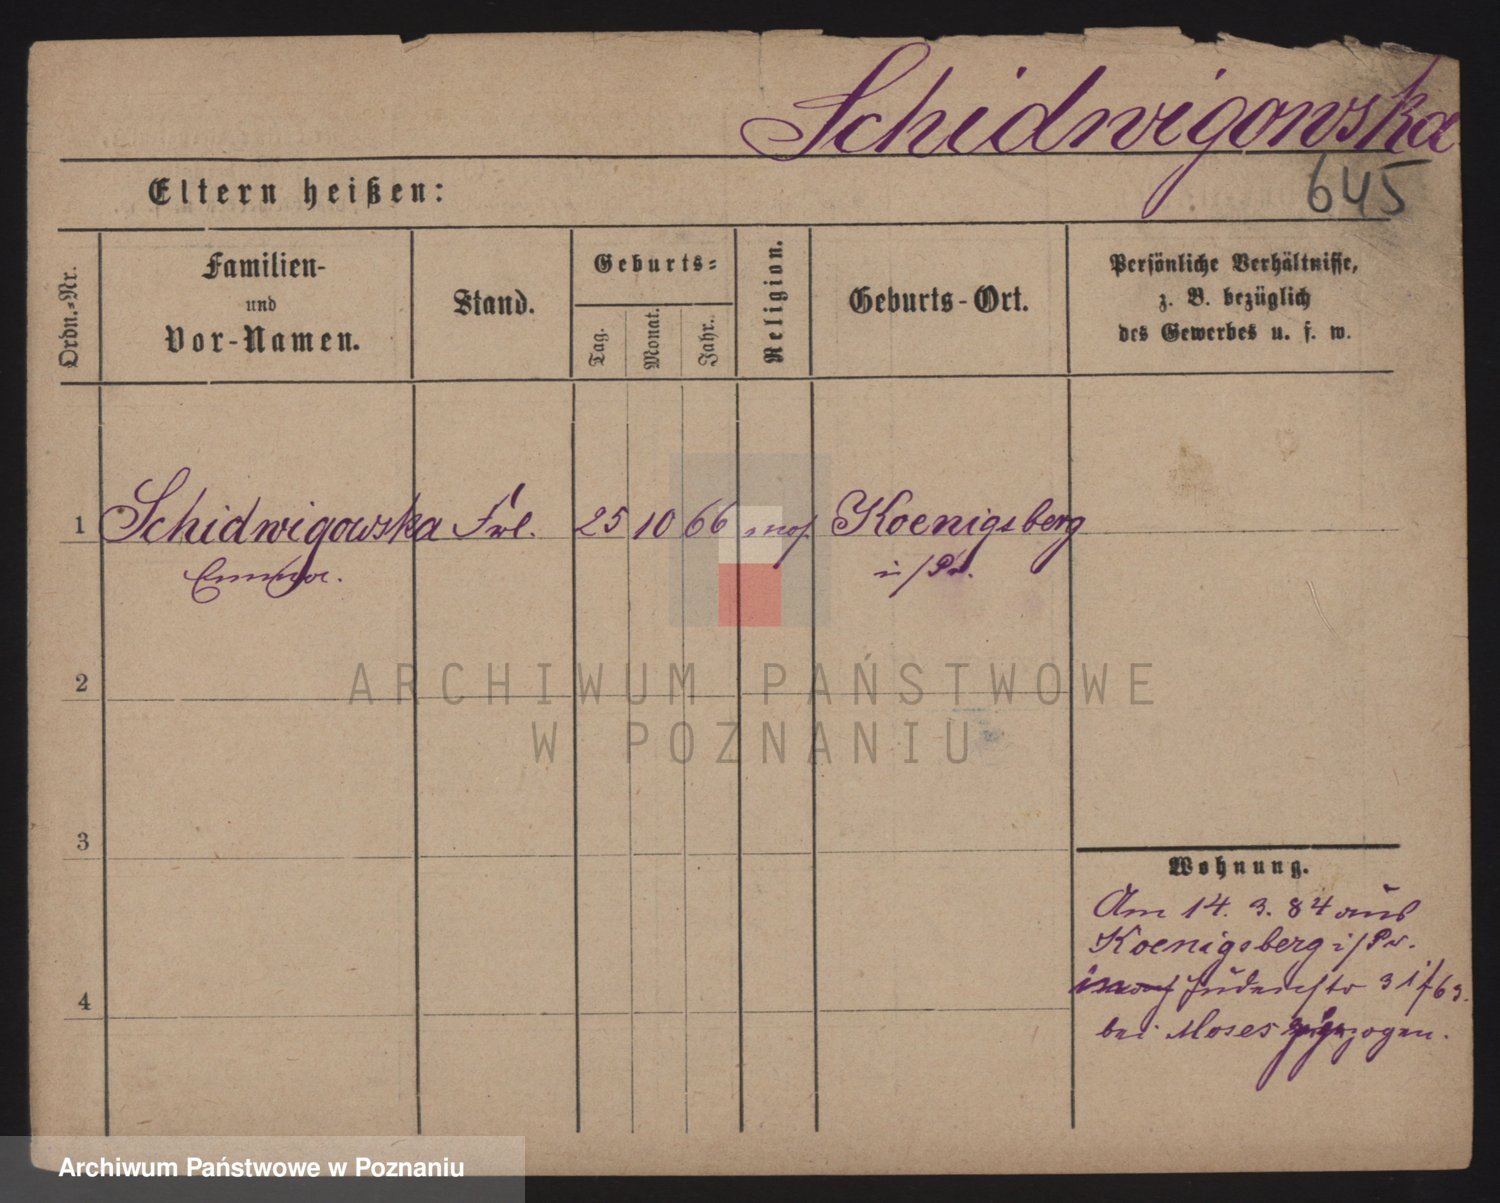 Schidwigowska
645
Eltern heißen:
Ordn.-Nr.
Familien-
und
Vor-Namen.
Stand.
Geburts-
Tag.
Monat.
Jahr.
Religion.
Geburts-Ort.
Persönliche Verhältnisse,
z. B. bezüglich
des Gewerbes u. s. w.
1 Schidwigowska Frl. 25 10 66 mos. Koenigsberg
Emma. i/Pr.
2
ARCHIWUM PAŃSTWOWE
W POZNANIU
3
Wohnung.
Am 14. 3. 84 aus
Koenigsberg i/Pr.
Judenstr 31/63.
4
bei Moses zugezogen.
Archiwum Państwowe w Poznaniu